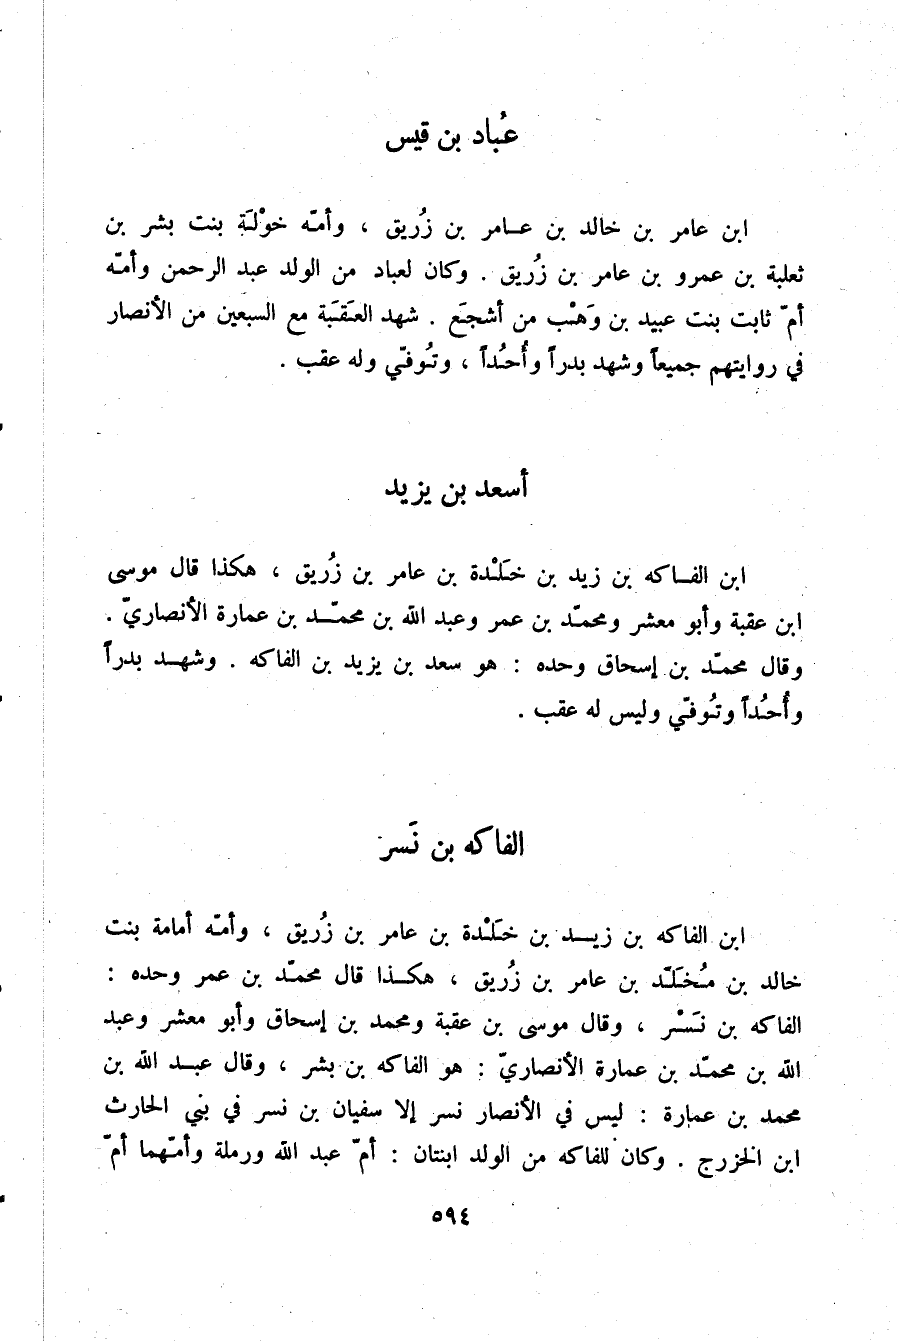 عُباد بن قيس
ابن عامر بن خالد بن عامر بن زُريق ، وأمّه خوْلَة بنت بشر بن
ثعلبة بن عمرو بن عامر بن زُريق . وكان لعباد من الولد عبد الرحمن وأمّه
أمّ ثابت بنت عبيد بن وَهْب من أشجَع . شهد العَقَبَة مع السبعين من الأنصار
في روايتهم جميعاً وشهد بدراً وأُحُداً ، وتُوفّي وله عقب .
أسعد بن يزيد
ابن الفاكه بن زيد بن خَلْدة بن عامر بن زُريق ، هكذا قال موسى
ابن عقبة وأبو معشر ومحمّد بن عمر وعبد الله بن محمّد بن عمارة الأنصاريّ .
وقال محمّد بن إسحاق وحده : هو سعد بن يزيد بن الفاكه . وشهد بدراً
وأُحُداً وتُوفّي وليس له عقب .
الفاكه بن نَسر
ابن الفاكه بن زيد بن خَلْدة بن عامر بن زُريق ، وأمّه أمامة بنت
خالد بن مُخَلّد بن عامر بن زُريق ، هكذا قال محمّد بن عمر وحده :
الفاكه بن نَسْر ، وقال موسى بن عقبة ومحمد بن إسحاق وأبو معشر وعبد
الله بن محمّد بن عمارة الأنصاريّ : هو الفاكه بن بشر ، وقال عبد الله بن
محمد بن عمارة : ليس في الأنصار نسر إلا سفيان بن نسر في بني الحارث
ابن الخزرج . وكان للفاكه من الولد ابنتان : أمّ عبد الله ورملة وأمّهما أمّ
٥٩٤